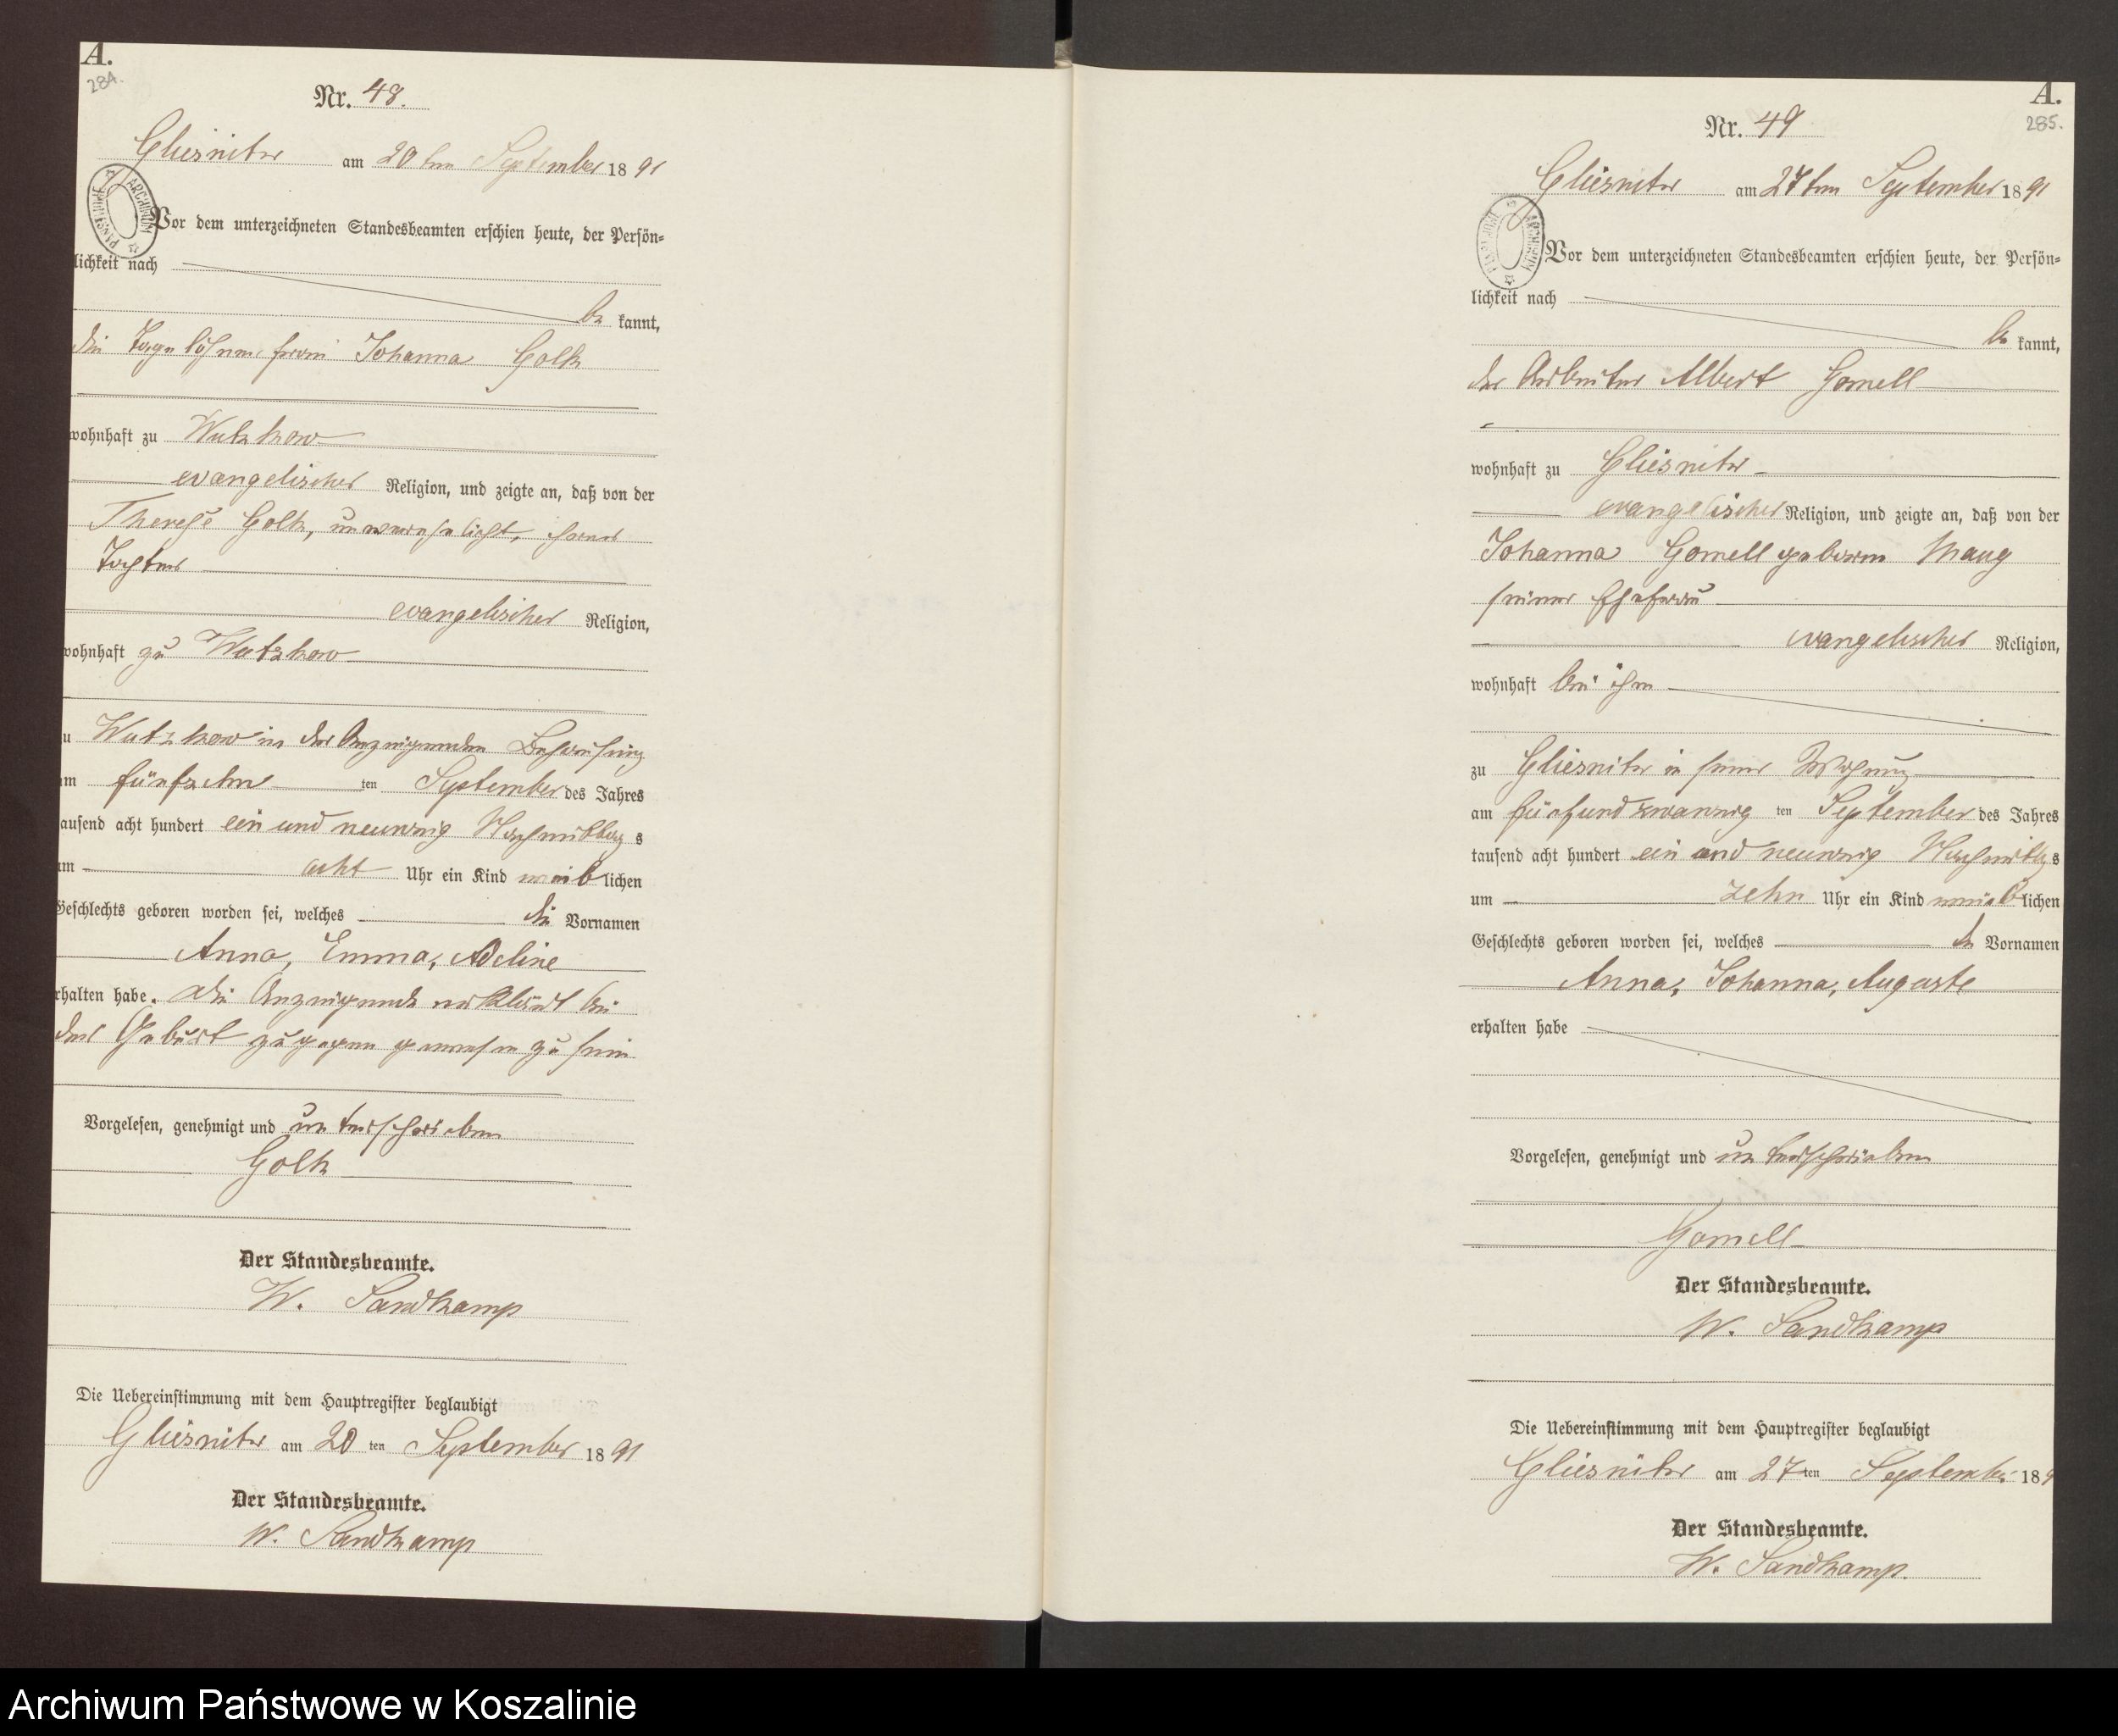 A.
284.
Nr. 48.
Gliesnitz am 20ten September 1891
Vor dem unterzeichneten Standesbeamten erschien heute, der Persön-
lichkeit nach
be kannt,
die Tagelöhnerfrau Johanna
wohnhaft zu
evangelischer Religion, und zeigte an, daß von der
Therese unverehelicht, ihrer
Tochter
evangelischer Religion,
wohnhaft zu
in der Anzeigenden Behausung
am fünfzehn ten September des Jahres
tausend acht hundert ein und neunzig Nachmittag s
um acht Uhr ein Kind weiblichen
Geschlechts geboren worden sei, welches die Vornamen
Anna, Emma, Adeline
erhalten habe. Die Anzeigende erklärt bei
der Geburt zugegen gewesen zu sein
Vorgelesen, genehmigt und unterschrieben
Der Standesbeamte.
W. Sandkamp
Die Uebereinstimmung mit dem Hauptregister beglaubigt
Gliesnitz am 20 ten September 1891
Der Standesbeamte.
W. Sandkamp
A.
285.
Nr. 49
Gliesnitz am 27ten September 1891
Vor dem unterzeichneten Standesbeamten erschien heute, der Persön-
lichkeit nach
be kannt,
der Arbeiter Albert Gomell
wohnhaft zu Gliesnitz
evangelischer Religion, und zeigte an, daß von der
Johanna Gomell geboren
seiner Ehefrau
evangelischer Religion,
wohnhaft bei ihm
zu Gliesnitz in seiner Wohnung
am fünfundzwanzig ten September des Jahres
tausend acht hundert ein und neunzig Nachmittags
um zehn Uhr ein Kind weiblichen
Geschlechts geboren worden sei, welches die Vornamen
Anna, Johanna, Auguste
erhalten habe
Vorgelesen, genehmigt und unterschrieben
Gomell
Der Standesbeamte.
W. Sandkamp
Die Uebereinstimmung mit dem Hauptregister beglaubigt
Gliesnitz am 27 ten September 189
Der Standesbeamte.
W. Sandkamp.
Archiwum Państwowe w Koszalinie